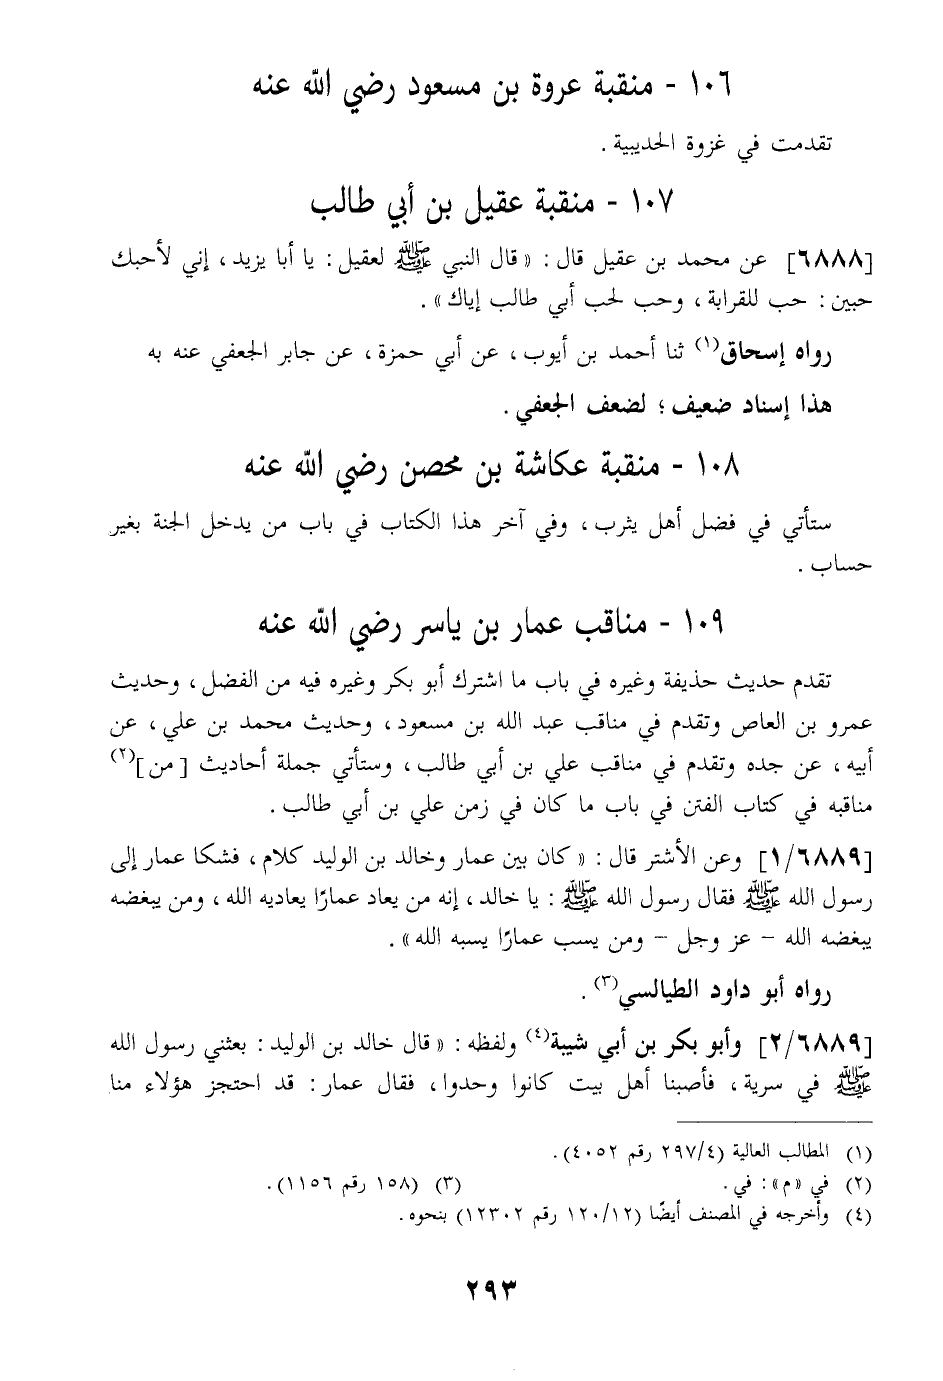 ١٠٦ - منقبة عروة بن مسعود رضي الله عنه
تقدمت في غزوة الحديبية .
١٠٧ - منقبة عقيل بن أبي طالب
[٦٨٨٨] عن محمد بن عقيل قال : « قال النبي ﷺ لعقيل : يا أبا يزيد ، إني لأحبك
حبين : حب للقرابة ، وحب لحب أبي طالب إياك» .
رواه إسحاق(١) ثنا أحمد بن أيوب ، عن أبي حمزة ، عن جابر الجعفي عنه به
هذا إسناد ضعيف ؛ لضعف الجعفي .
١٠٨ - منقبة عكاشة بن محصن رضي الله عنه
ستأتي في فضل أهل يثرب ، وفي آخر هذا الكتاب في باب من يدخل الجنة بغير
حساب .
١٠٩ - مناقب عمار بن ياسر رضي الله عنه
تقدم حديث حذيفة وغيره في باب ما اشترك أبو بكر وغيره فيه من الفضل ، وحديث
عمرو بن العاص وتقدم في مناقب عبد الله بن مسعود ، وحديث محمد بن علي ، عن
أبيه ، عن جده وتقدم في مناقب علي بن أبي طالب ، وستأتي جملة أحاديث [من](٢)
مناقبه في كتاب الفتن في باب ما كان في زمن علي بن أبي طالب .
[١/٦٨٨٩] وعن الأشتر قال : « كان بين عمار وخالد بن الوليد كلام ، فشكا عمار إلى
رسول الله ﷺ فقال رسول الله ﷺ : يا خالد ، إنه من يعاد عمارًا يعاديه الله ، ومن يبغضه
يبغضه الله – عز وجل – ومن يسب عمارًا يسبه الله» .
رواه أبو داود الطيالسي(٣) .
[٢/٦٨٨٩] وأبو بكر بن أبي شيبة(٤) ولفظه : « قال خالد بن الوليد : بعثني رسول الله
ﷺ في سرية ، فأصبنا أهل بيت كانوا وحدوا ، فقال عمار : قد احتجز هؤلاء منا
(١) المطالب العالية (٢٩٧/٤ رقم ٤٠٥٢) .
(٢) في «م» : في . (٣) (١٥٨ رقم ١١٥٦) .
(٤) وأخرجه في المصنف أيضًا (١٢٠/١٢ رقم ١٢٣٠٢) بنحوه .
٢٩٣